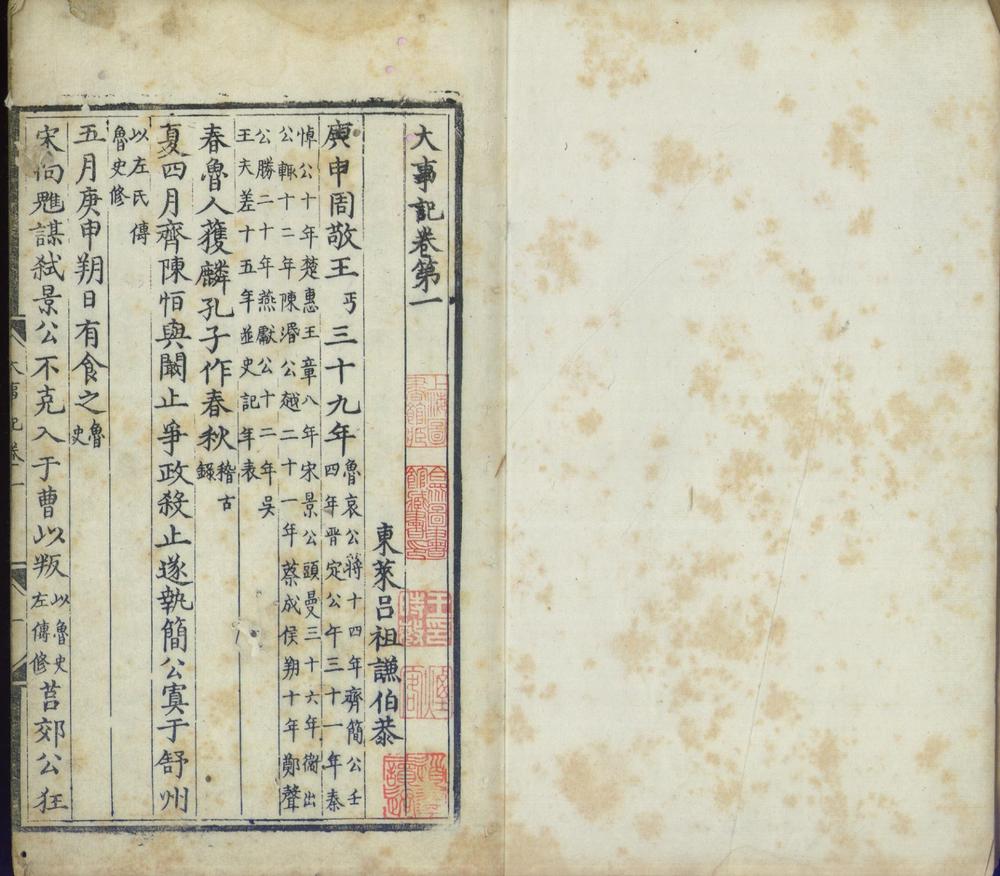 大事記卷第一
合眾圖書館藏書印
東萊呂祖謙伯恭
庚申周敬王丐三十九年魯哀公蔣十四年齊簡公壬
四年晉定公午三十一年秦
悼公十年楚惠王章八年宋景公頭曼三十六年衞出
公輒十二年陳湣公越二十一年蔡成侯朔十年鄭聲
公勝二十年燕獻公十二年吳
王夫差十五年並史記年表
春魯人獲麟孔子作春秋稽古
錄
夏四月齊陳恒與闞止爭政殺止遂執簡公寘于舒州
以左氏傳
魯史修
五月庚申朔日有食之魯
史
宋向魋謀弒景公不克入于曹以叛以魯史
左傳修莒郊公狂
大事記卷一